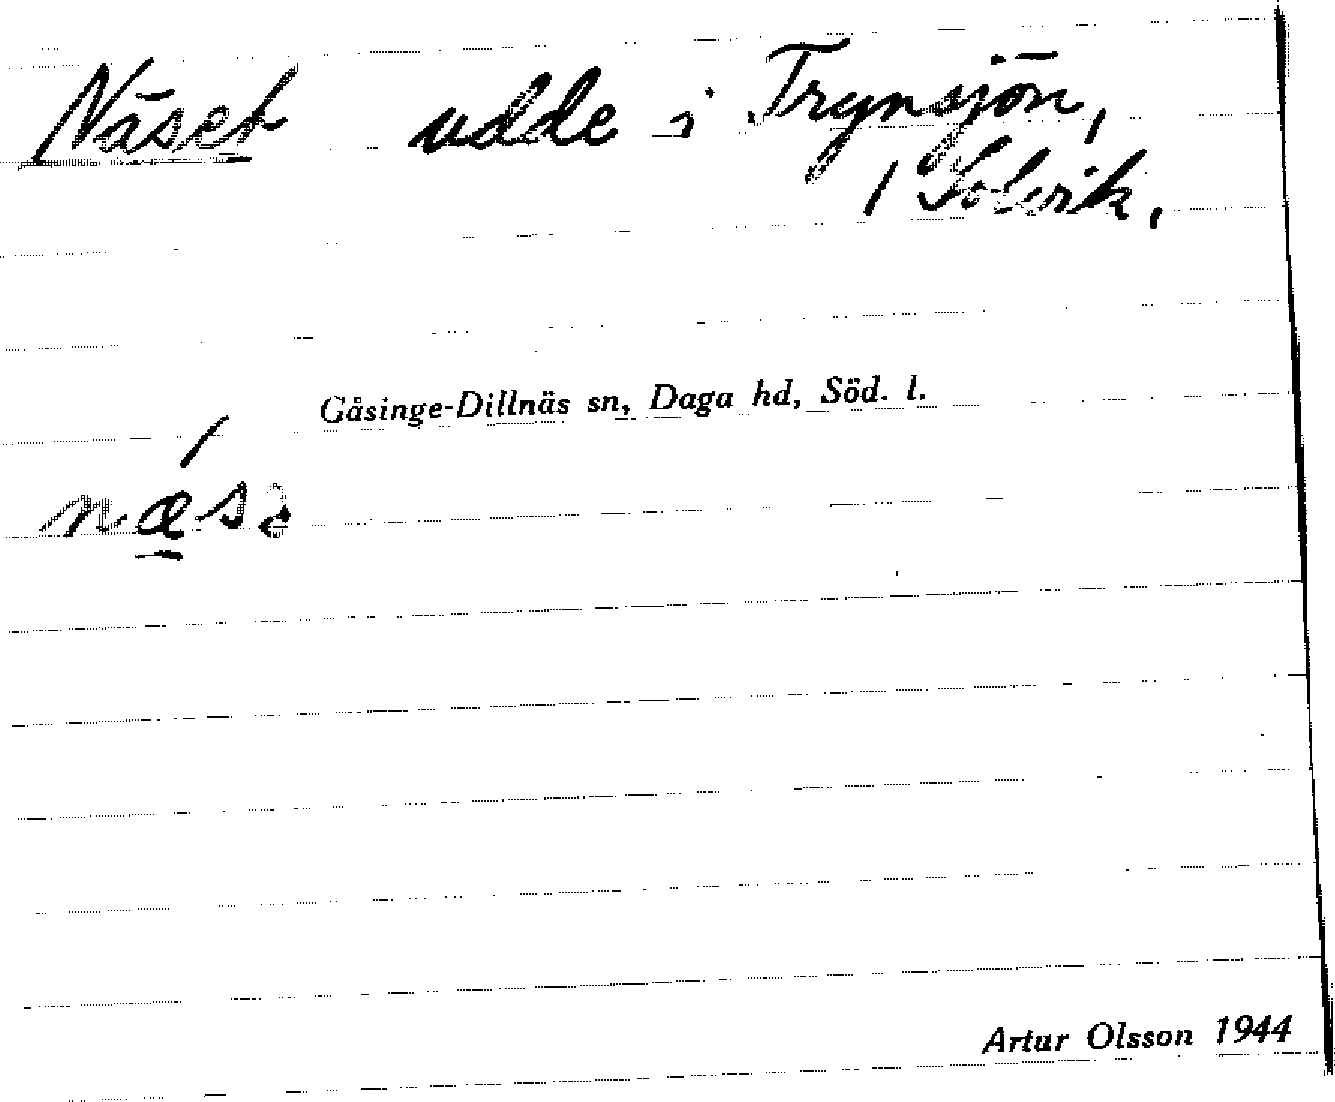 Näset udde i Trynsjön,
/ Solvik.
Gåsinge-Dillnäs sn, Daga hd, Söd. l.
Artur Olsson 1944